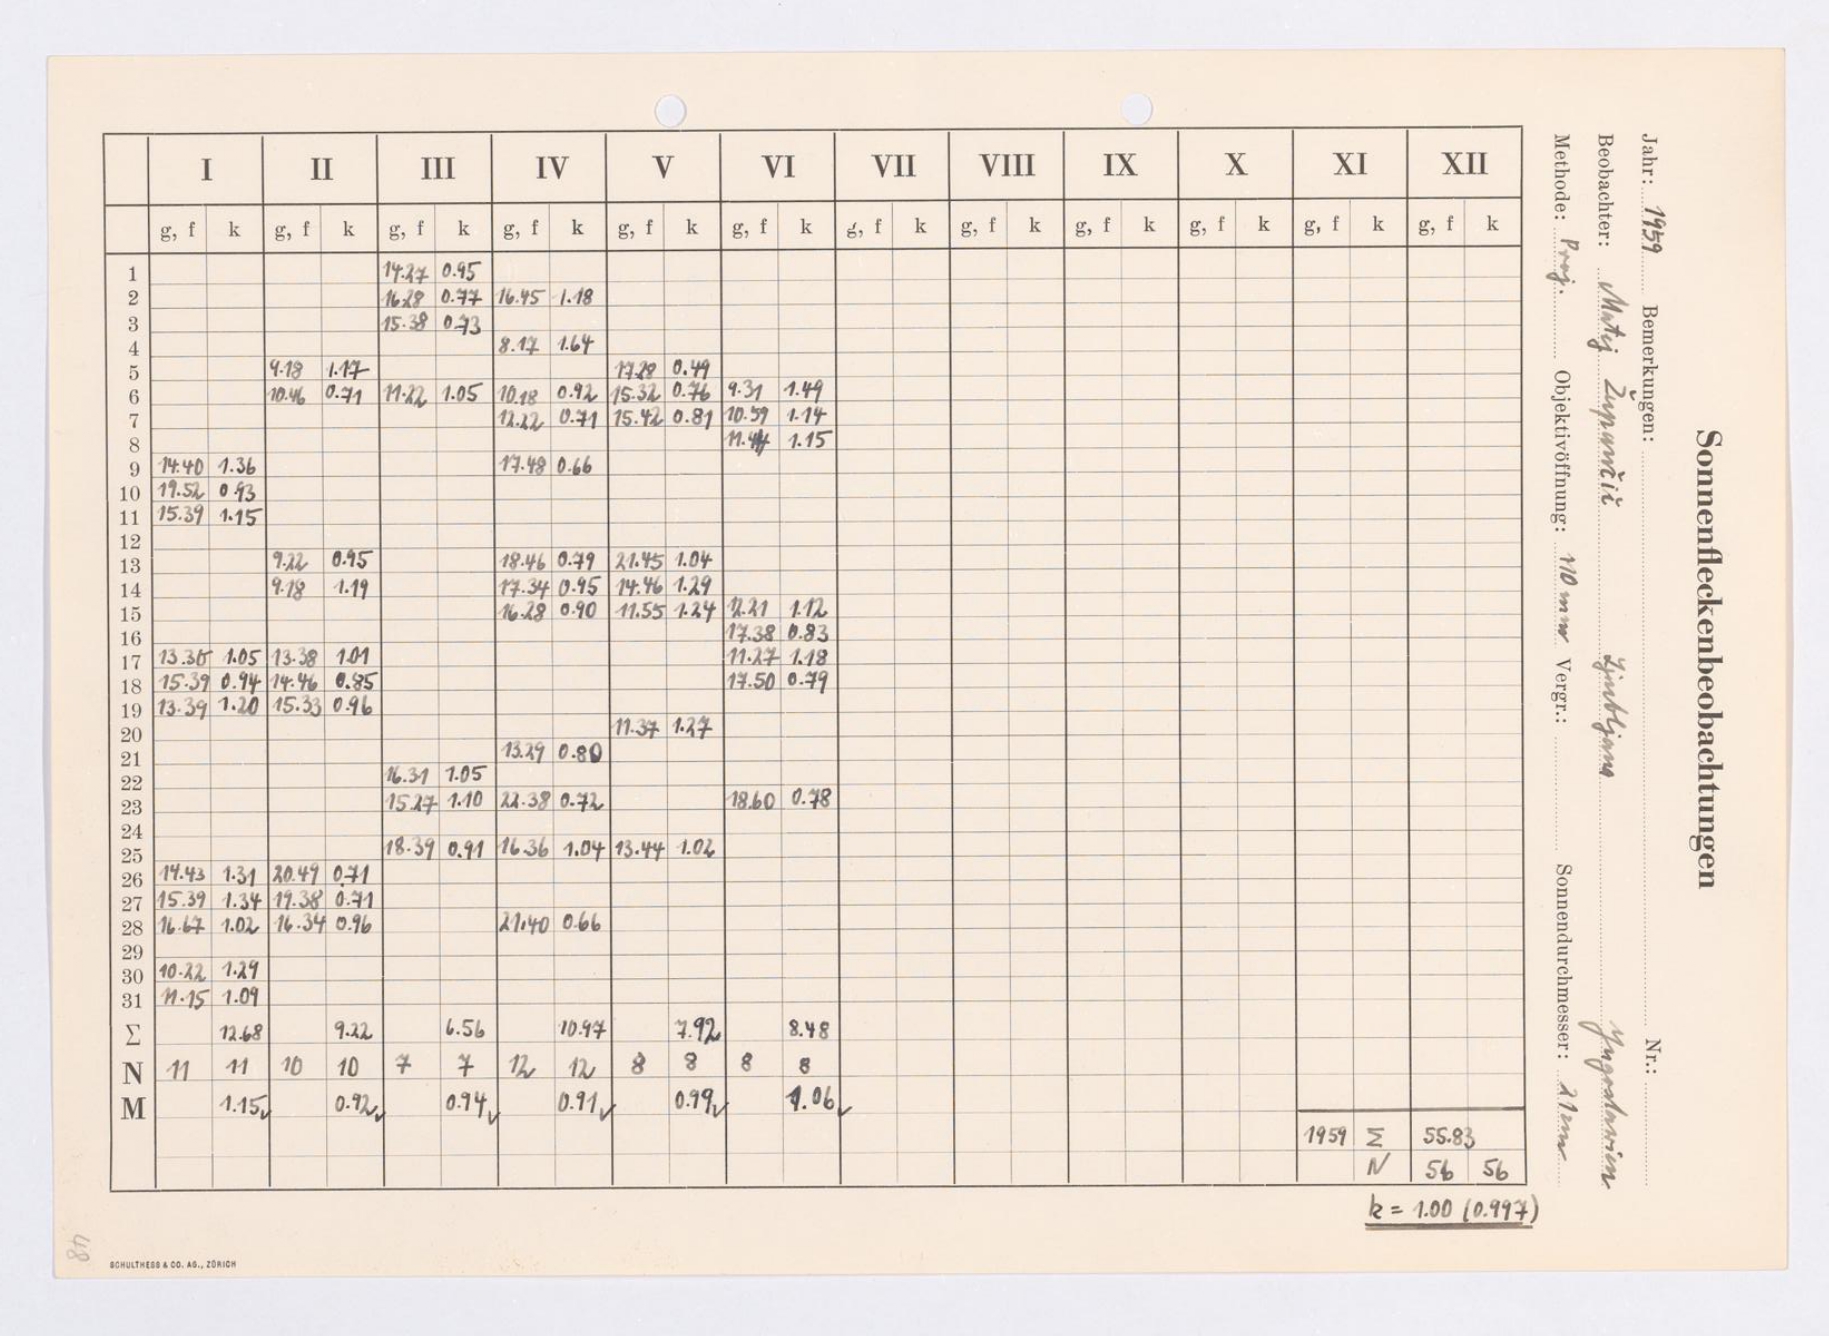 Sonnenfleckenbeobachtungen
Jahr: 1959 Bemerkungen: Nr.:
Beobachter: Matij Župančič Ljubljana Jugoslawien
Methode: Proj. Objektivöffnung: 110 mm Vergr.: Sonnendurchmesser: 21cm
I II III IV V VI VII VIII IX X XI XII
g, f k g, f k g, f k g, f k g, f k g, f k g, f k g, f k g, f k g, f k g, f k g, f k
1 14.27 0.95
2 16.28 0.77 16.45 1.18
3 15.38 0.73
4 8.17 1.64
5 9.18 1.17 17.28 0.49
6 10.46 0.71 11.22 1.05 10.18 0.92 15.32 0.76 9.31 1.49
7 12.22 0.71 15.42 0.81 10.59 1.14
8 11.44 1.15
9 14.40 1.36 17.48 0.66
10 19.52 0.93
11 15.39 1.15
12
13 9.22 0.95 18.46 0.79 21.45 1.04
14 9.18 1.19 17.34 0.95 14.46 1.29
15 16.28 0.90 11.55 1.24 12.21 1.12
16 17.38 0.83
17 13.36 1.05 13.38 1.01 11.27 1.18
18 15.39 0.94 14.46 0.85 17.50 0.79
19 13.39 1.20 15.33 0.96
20 11.37 1.27
21 13.29 0.80
22 16.31 1.05
23 15.27 1.10 22.38 0.72 18.60 0.78
24
25 18.39 0.91 16.36 1.04 13.44 1.02
26 14.43 1.31 20.49 0.71
27 15.39 1.34 19.38 0.71
28 16.67 1.02 16.34 0.96 21.40 0.66
29
30 10.22 1.29
31 11.15 1.09
Σ 12.68 9.22 6.56 10.97 7.92 8.48
N 11 11 10 10 7 7 12 12 8 8 8 8
M 1.15 0.92 0.94 0.91 0.99 1.06
1959 Σ 55.83
N 56 56
k = 1.00 (0.997)
48
SCHULTHESS & CO. AG., ZÜRICH